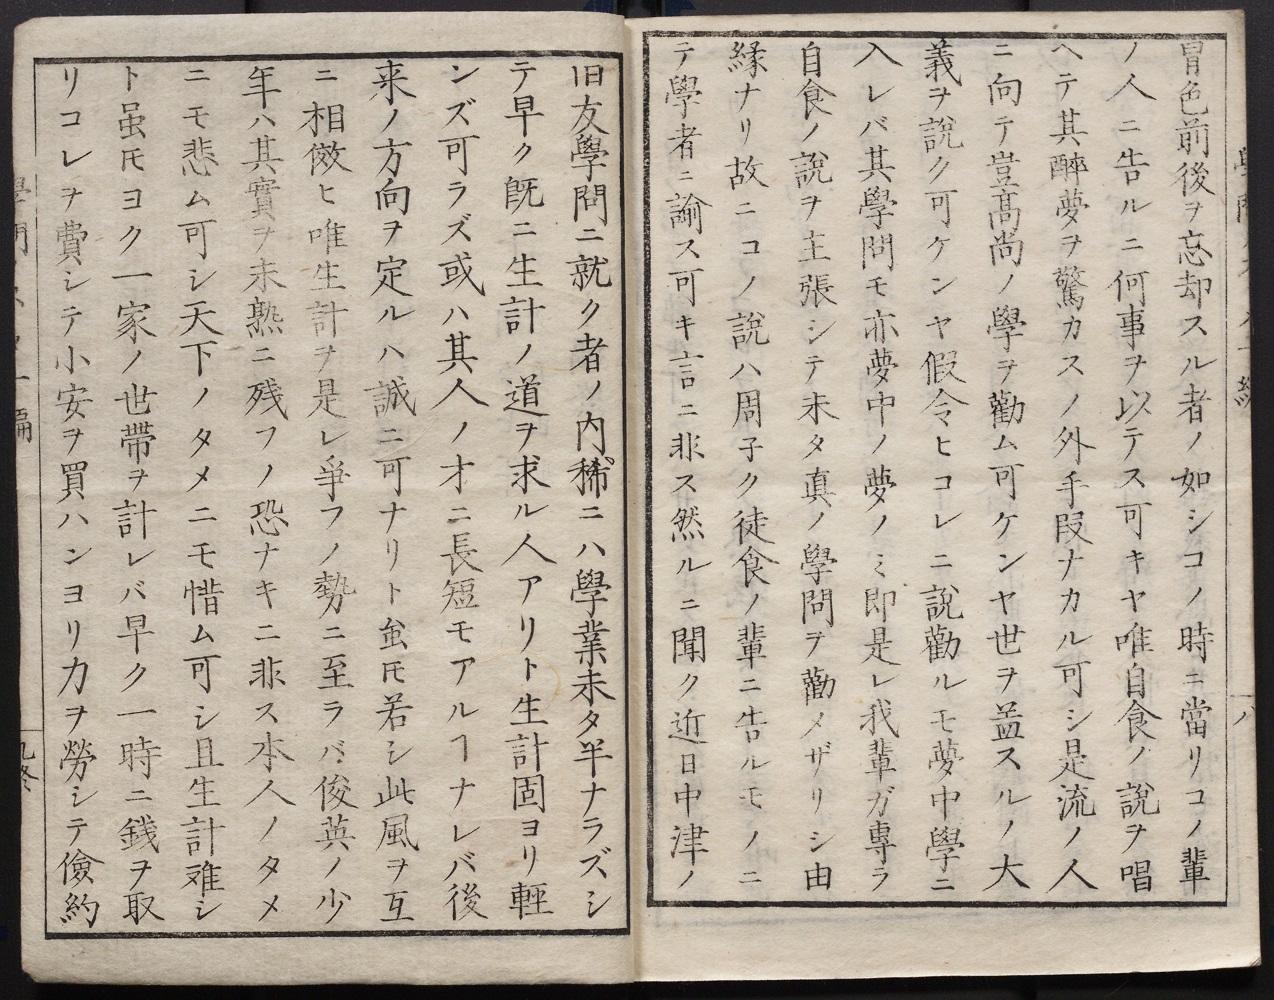 冒色前後ヲ忘却スル者ノ如シコノ時ニ當リコノ輩
ノ人ニ告ルニ何事ヲ以テス可キヤ唯自食ノ說ヲ唱
ヘテ其醉夢ヲ驚カスノ外手段ナカル可シ是流ノ人
ニ向テ豈髙尚ノ學ヲ勸ム可ケンヤ世ヲ益スルノ大
義ヲ說ク可ケンヤ假令ヒコレニ說勸ルモ夢中學ニ
入レバ其學問モ亦夢中ノ夢ノミ即是レ我輩ガ專ラ
自食ノ說ヲ主張シテ未タ真ノ學問ヲ勸メザリシ由
縁ナリ故ニコノ說ハ周子ク徒食ノ輩ニ告ルモノニ
テ學者ニ諭ス可キ言ニ非ス然ルニ聞ク近日中津ノ
旧友學問ニ就ク者ノ内稀ニハ學業未タ半ナラズシ
テ早ク既ニ生計ノ道ヲ求ル人アリト生計固ヨリ輕
ンズ可ラズ或ハ其人ノ才ニ長短モアルヿナレバ後
来ノ方向ヲ定ルハ誠ニ可ナリト虽𪜈若シ此風ヲ互
ニ相傚ヒ唯生計ヲ是レ爭フノ勢ニ至ラバ俊英ノ少
年ハ其實ヲ未熟ニ残フノ恐ナキニ非ス本人ノタメ
ニモ悲ム可シ天下ノタメニモ惜ム可シ且生計难シ
ト虽𪜈ヨク一家ノ世帶ヲ計レバ早ク一時ニ錢ヲ取
リコレヲ費シテ小安ヲ買ハンヨリ力ヲ勞シテ儉約